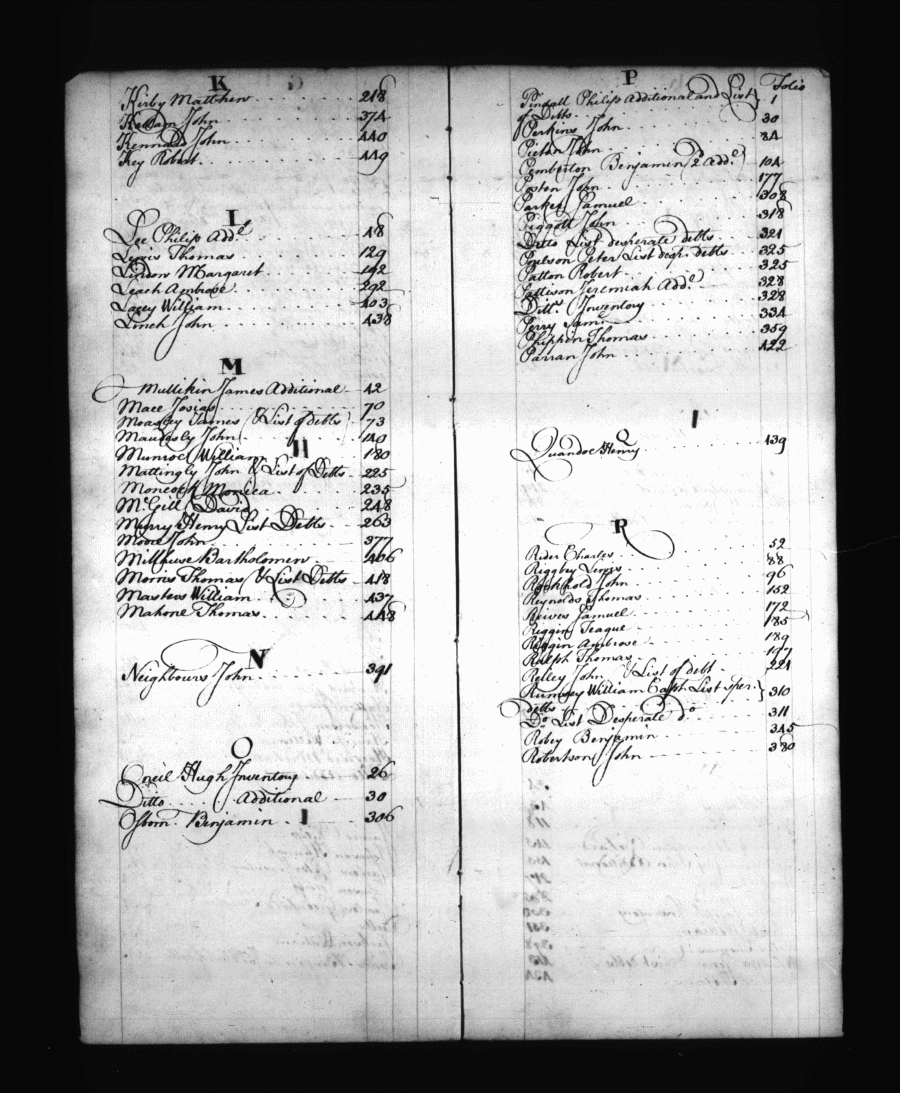 K
Kirby Matthew 218
Kellam John 374
Kennard John 440
Key Robert 449
L
Lee Philip Addl 48
Lewis Thomas 129
Lindow Margaret 192
Leach Ambrose 292
Lacey William 403
Linch John 438
M
Mullikin James Additional 42
Mace Josias 70
Moasley Thomas & List of debts 73
Maudesly John 140
Munroe William 180
Mattingly John & List of Debts 225
Moncock Monica 235
McGill David 248
Murry Henry List Debts 263
Moore John 377
Millhuse Bartholomew 406
Morris Thomas & List Debts 418
Masters William 437
Mahone Thomas 448
N
Neighbours John 391
O
Oneil Hugh Inventory 26
Ditto Additional 30
Osborn Benjamin 306
P Folio
Pindall Philip Additional and List
of Debts 1
Perkins John 30
John 84
Pemberton Benjamin (2 Addl) 104
Poston John 177
Parker Samuel 308
Piggott John 318
Ditto List desperate debts 321
Poulson Peter List desp. debts 325
Patton Robert 325
Pattison Jeremiah Addl 328
Ditto Inventory 328
Perry Saml 334
Phippen Thomas 359
Parran John 422
Q
Quandoe Henry 439
R
Rider Charles 52
Riggby Lewis 88
Rockhold John 96
Reynolds Thomas 152
Reives Samuel 172
Riggin Teague 185
Riggin Ambrose 189
Ralph Thomas 197
Relley John & List of debt 221
Rumsey William Capt. List sper.
debts 310
Do List Desperate do 311
Robey Benjamin 345
Robertson John 380